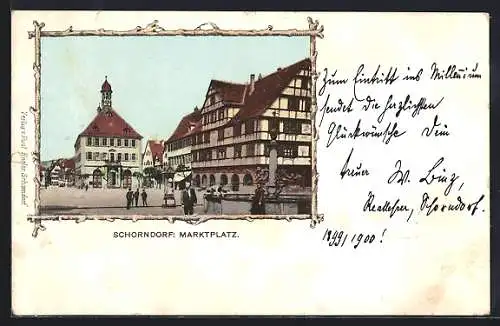 Zum Eintritt ins Millenium
sendet die herzlichsten
Glückwünsche Dein
treuer W. Binz,
Reallehrer, Schorndorf.
1899/1900!
SCHORNDORF: MARKTPLATZ.
Verlag v. Paul Schorndorf